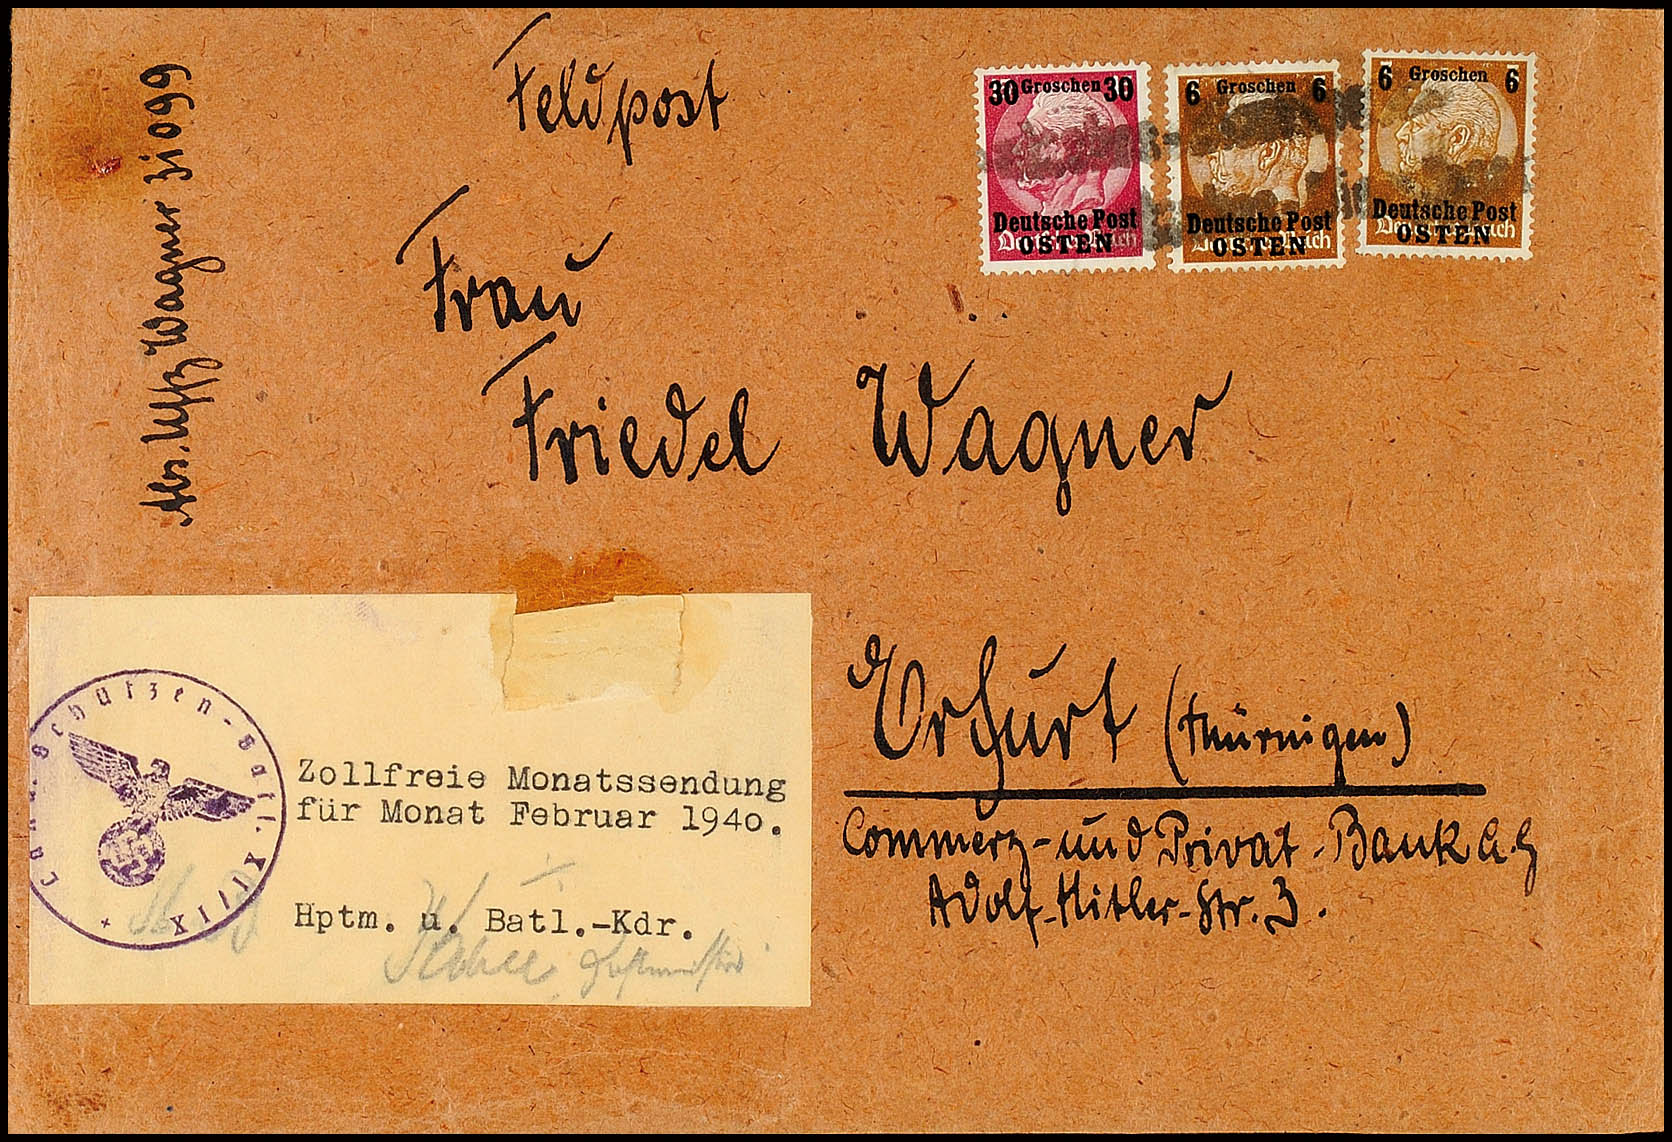 Feldpost
Abs. Uffz Wagner 31099
30 Groschen 30
Deutsche Post
OSTEN
6 Groschen 6
Deutsche Post
OSTEN
6 Groschen 6
Deutsche Post
OSTEN
Frau
Friedel Wagner
Erfurt (Thürnigen)
Commerz- und Privat-Bank A.G
Adolf-Hitler-Str. 3.
Land. Schützen-Batl. XII/IX +
Zollfreie Monatssendung
für Monat Februar 1940.
Hptm. u. Batl.-Kdr.